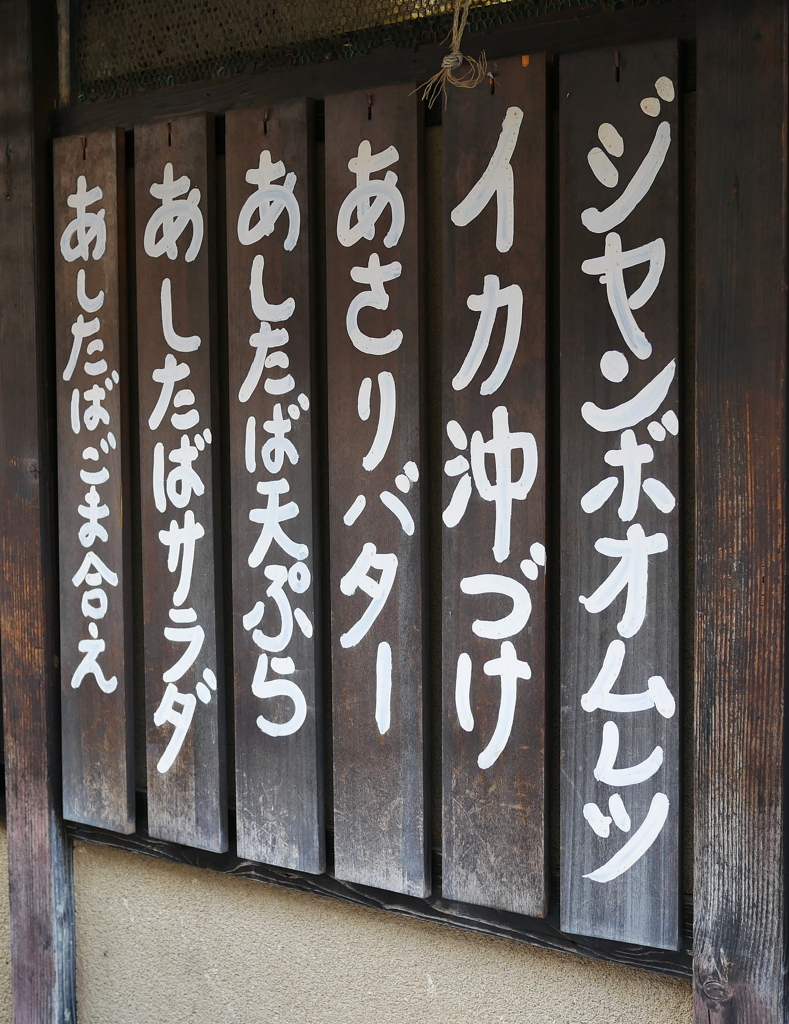 ジャンボオムレツ
イカ沖づけ
あさりバター
あしたば天ぷら
あしたばサラダ
あしたばごま合え